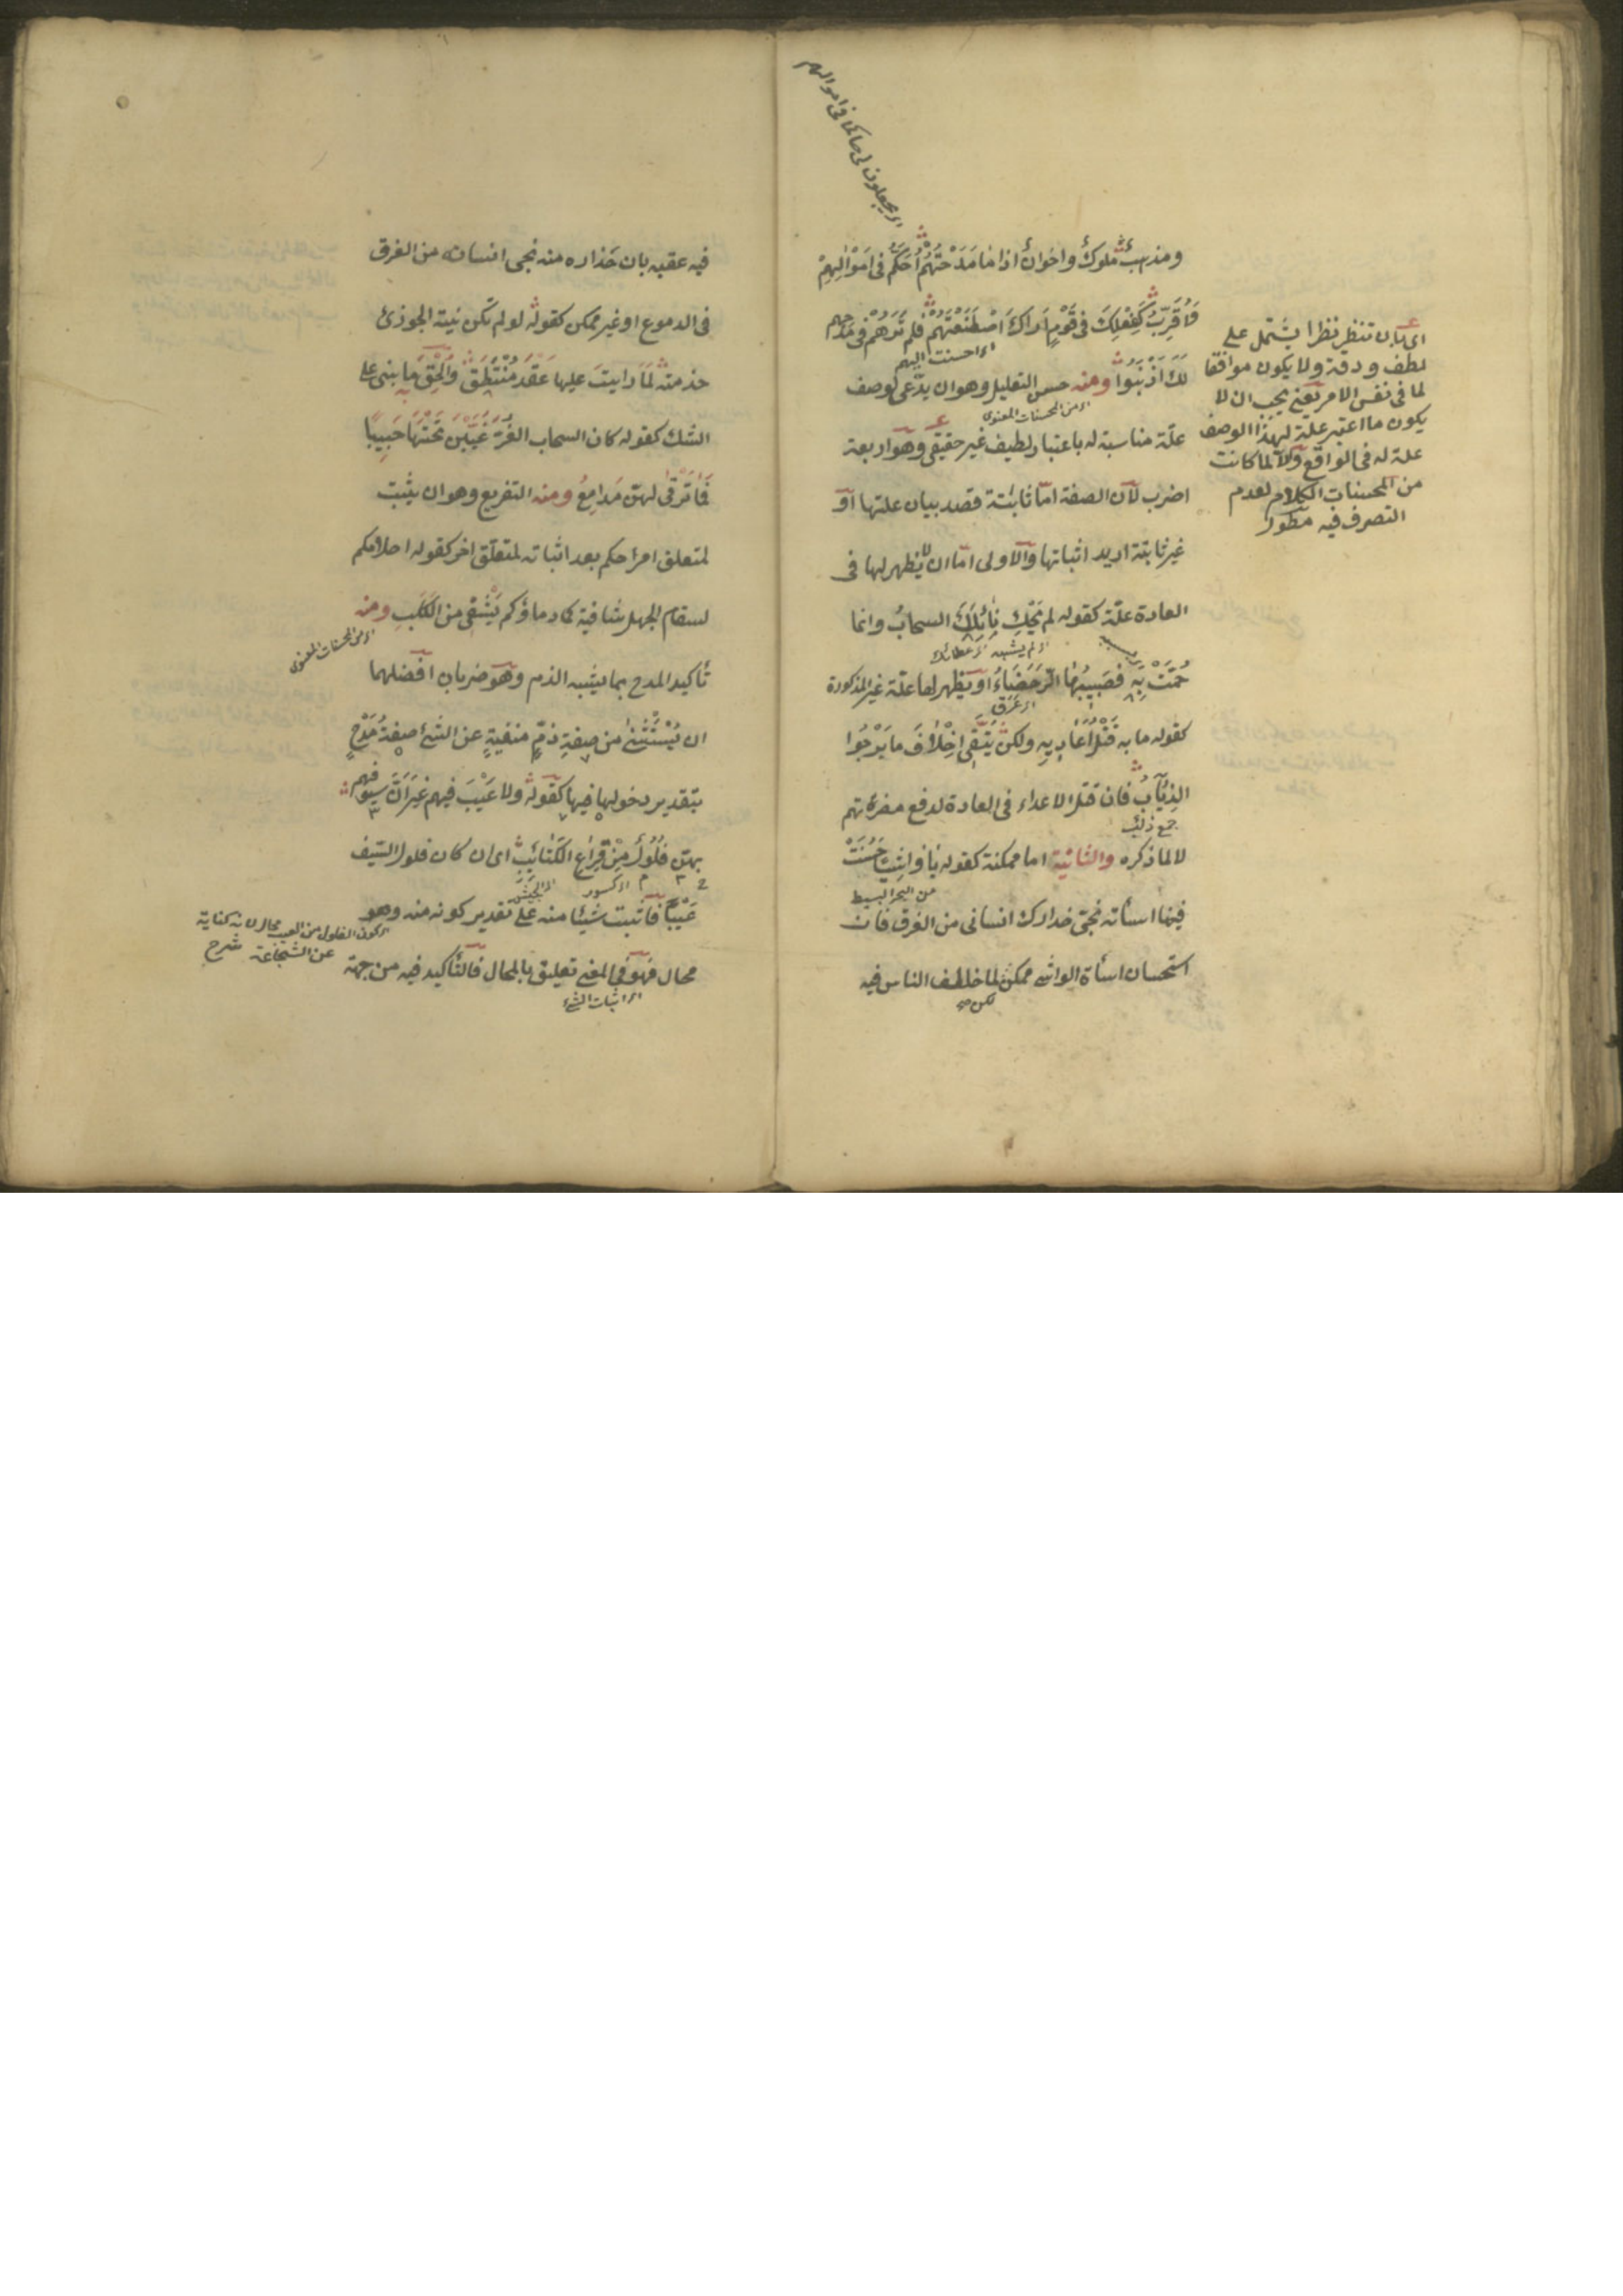 اى يجعلون لى حاكما فى اموالهم
ومذهبٌ ملوكٌ واخوانٌ اذا ما مَدَحْتَهُمْ اُحَكَّمُ فى اَمْوَالِهِمْ
وَاُقَرَّبُ كَفِعْلِكَ فى قَوْمٍ اَراكَ اصْطَنَعْتَهُمْ فلم تَرَهُمْ فى مَدْحِهِم
اى احسنت اليهم
لَكَ اَذْنَبُوا ومنه حسن التعليل وهو ان يدّعى لوصف
اى من المحسنات المعنوى
علّة مناسبة له باعتبار لطيف غير حقيقى وهو اربعة
اضرب لان الصفة امّا ثابتة قصد بيان علتها او
غير ثابتة اريد اثباتها والاولى امّا ان لا يظهر لها فى
العادة علّة كقوله لم تَحْكِ نَائِلَكَ السحابُ وانما
اى لم يشبه اى عطائك
حُمَّتْ بِه فصَبِيبُهَا الرُّحَضَاءُ او يظهر لها علّة غير المذكورة
اى عَرَق
كقوله ما به قَتْلُ اَعَادِيهِ ولكنْ يَتَّقِى اِخْلَافَ ما يَرْجُوا
الذِئَابُ فان قتل الاعداء فى العادة لدفع مضرّتهم
جمع ذئب
لا لما ذكره والثانية اما ممكنة كقوله يا واشيا حَسُنَتْ
من البحر البسيط
فينا اسائته نجّى حذارك انسانى من الغرق فان
استحسان اسأة الواشى ممكن لما خالف الناس فيه
لكن صح
اى بان تنظر نظرا يشتمل على
لطف ودقة ولا يكون موافقا
لما فى نفس الامر يعنى يجب ان لا
يكون ما اعتبر علة لهذا الوصف
علة له فى الواقع والا لما كانت
من المحسنات الكلام لعدم
التصرف فيه مطول
فيه عقبه بان حَذاره منه نجى انسانه من الغرق
فى الدموع او غير ممكن كقوله لو لم تكن نيّة الجوزئ
خدمته لَمَا رايتَ عليها عَقْدَ مُنْتَطِقْ وَاُلْحِقَ ما بنى على
به
الشك كقوله كان السحاب الغُرَّ غَيَّبْنَ تَحْتَهَا حَبِيبًا
فَمَا تَرْقَى لهنّ مَدامِعُ ومنه التفريع وهو ان يثبت
لمتعلق امر حكم بعد اثباته لمتعلّق اخر كقوله احلامكم
لسقام الجهل شافية كما دماؤكم يَشْفِى من الكَلَبِ ومنه
اى من المحسنات المعنوى
تأكيد المدح بما يشبه الذم وهو ضربان افضلهما
ان يُسْتَثْنى من صِفةِ ذمٍّ منفيةٍ عن الشئ صِفةُ مَدْحٍ
بتقدير دخولها فيها كقوله ولا عَيْبَ فيهم غيرَ انّ سيوفهم
بهنّ فُلُولٌ مِنْ قِرَاعِ الكَتَائِبِ اى ان كان فلول السّيف
اى كسور اى الجيش
عَيْبًا فاثبت شيئا منه على تقدير كونه منه وهو
اى كون الفلول من العيب محال لانه كناية
عن الشجاعة شرح
محال فهو فى المعنى تعليق بالمحال فالتأكيد فيه من جهة
اى اثبات الشئ